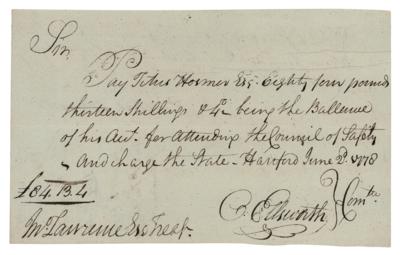 Sir,
Pay Titus Hosmer Esqr. Eighty four pounds
thirteen Shillings & 4d. being the Ballence
of his Acct. for Attending the Council of Safety
and charge the State - Hartford June 2d. 1778
£84.13.4
O. Ellsworth } Comtee.
Jno. Lawrence Esq Treasr.